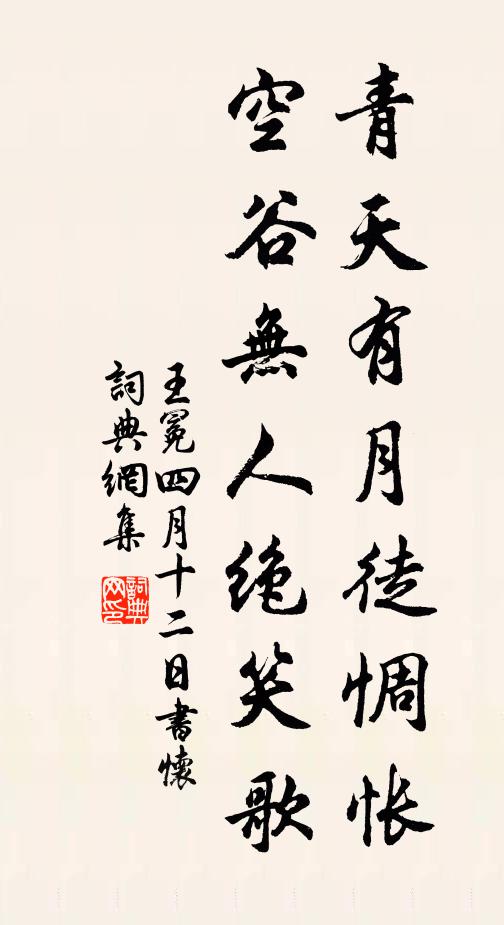 青天有月徒惆怅
空谷無人絶笑歌
王冕四月十二日書懷
詞典網集
詞典
网印